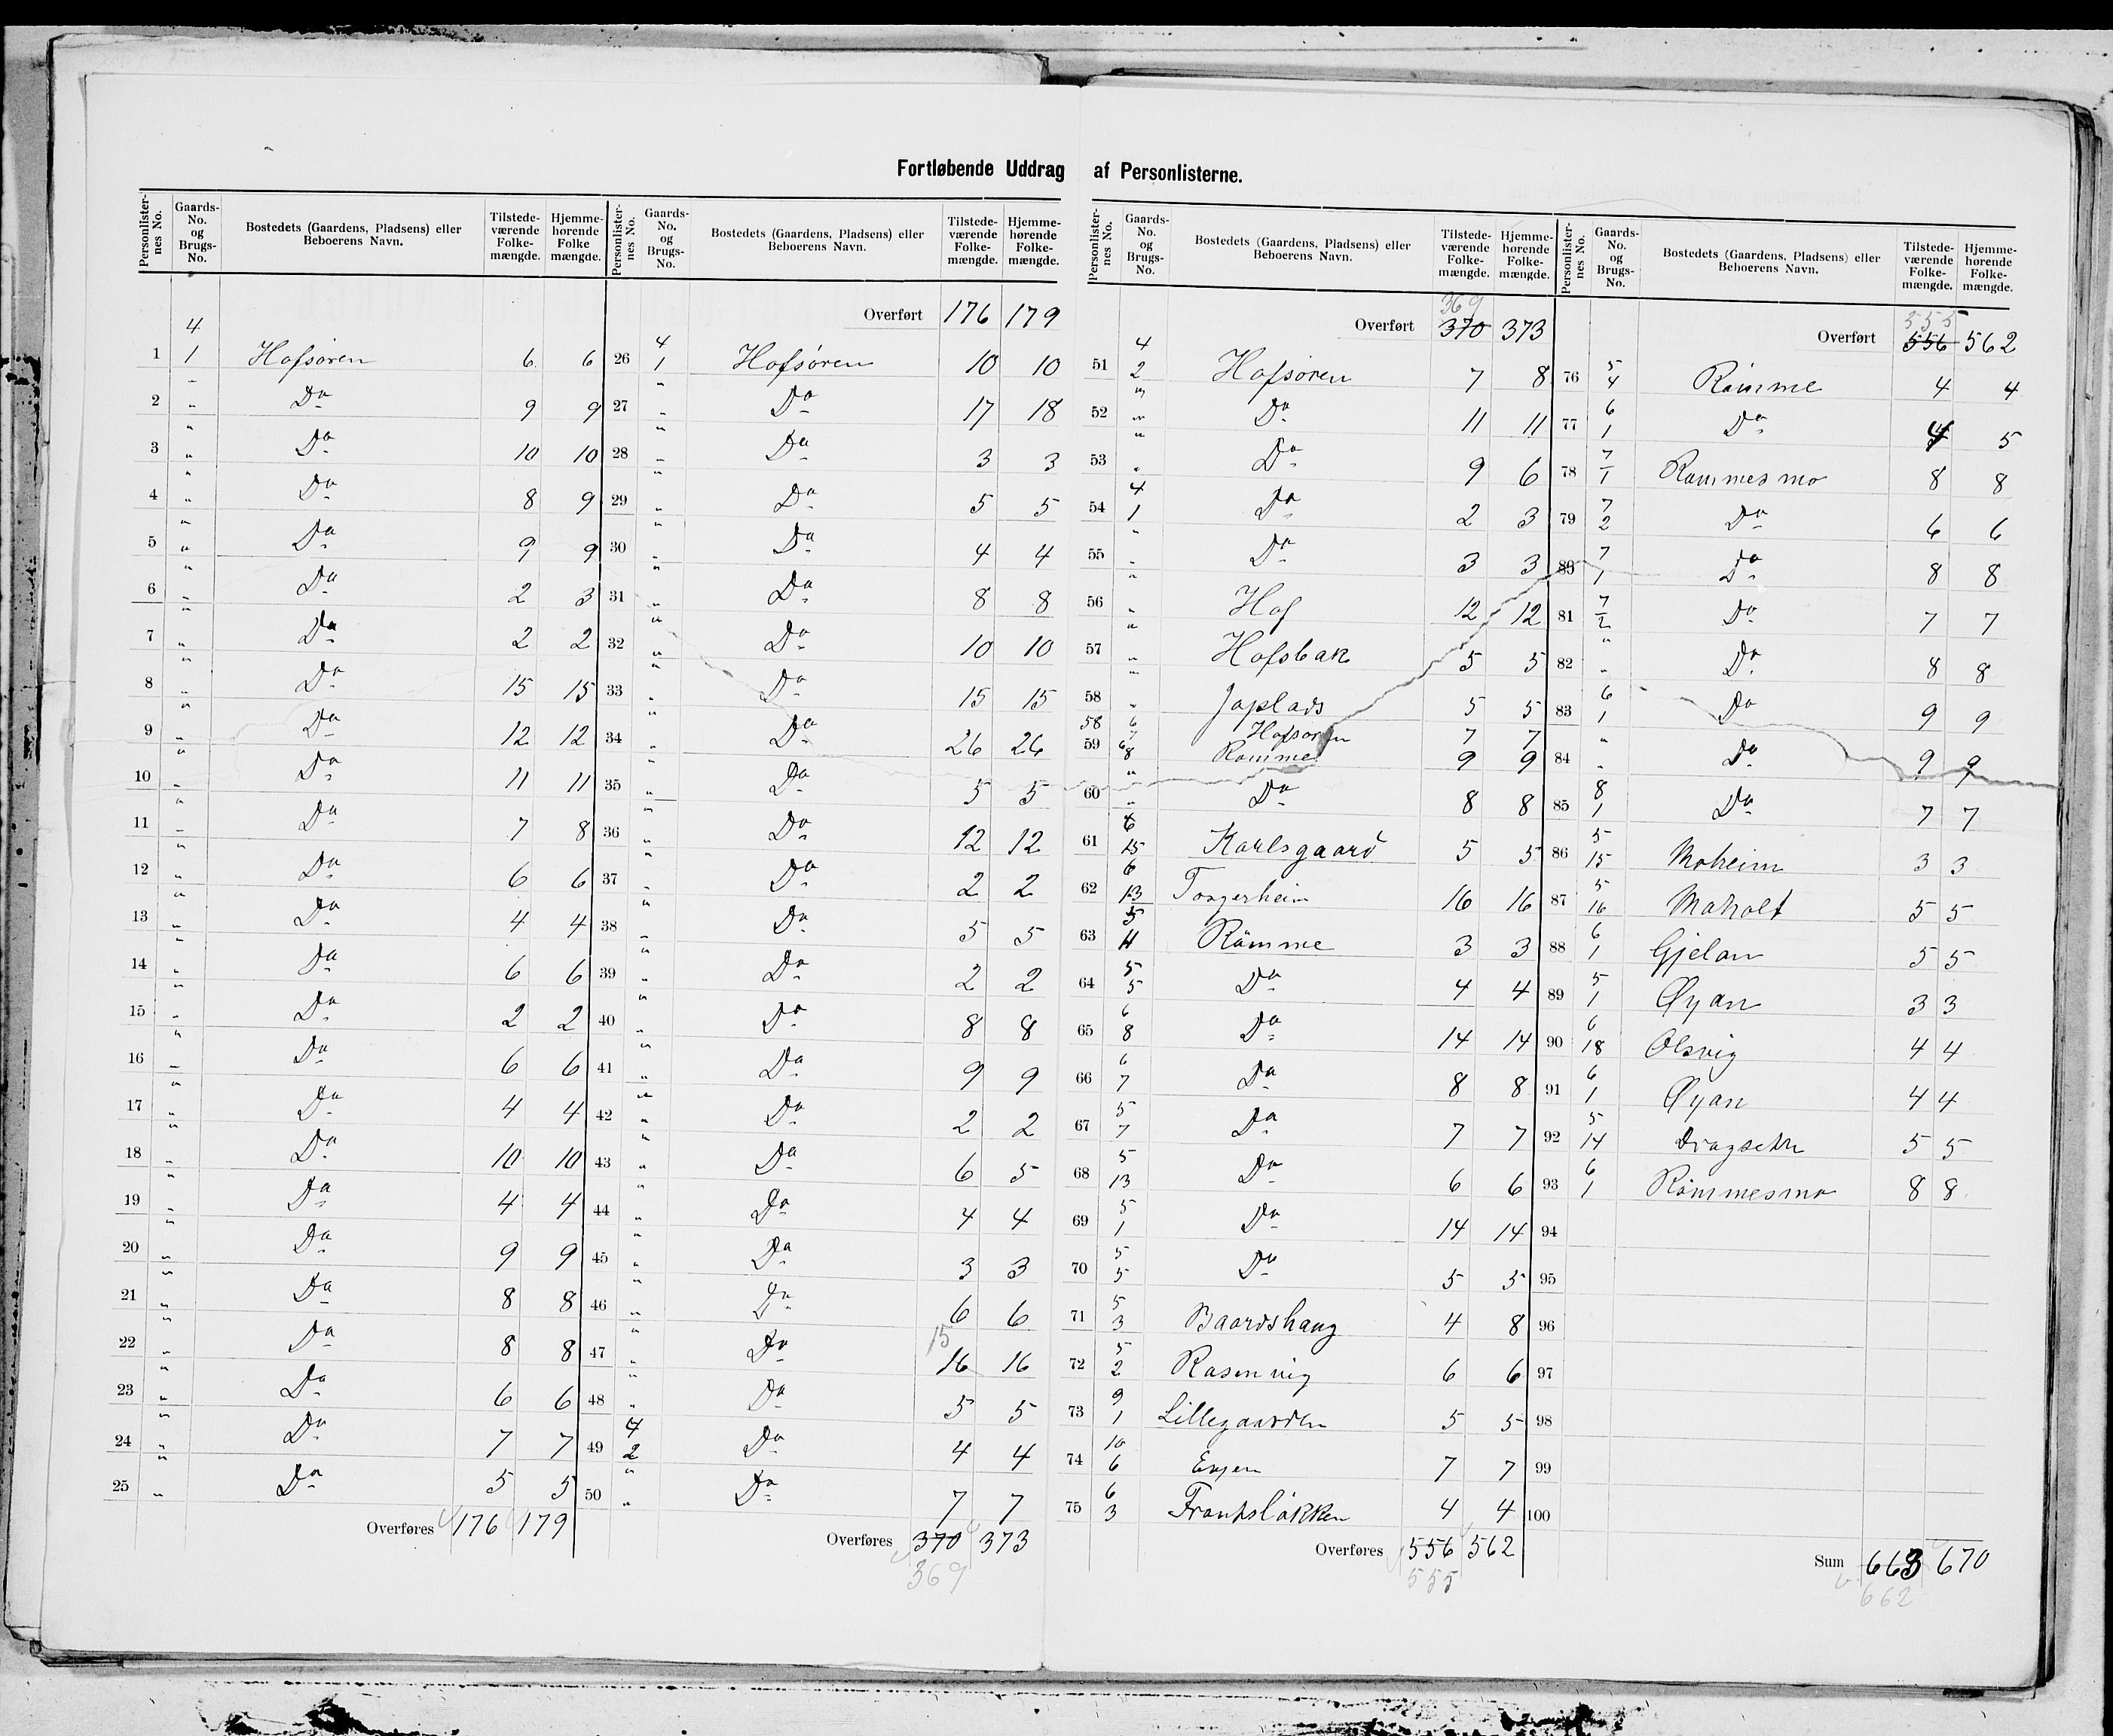 Fortløbende Uddrag af Personlisterne.
Personlisternes No. Gaards-No. og Brugs-No. Bostedets (Gaardens, Pladsens) eller Beboerens Navn. Tilstedeværende Folkemængde. Hjemmehørende Folkemængde.
1 4 1 Hofsøren 6 6
2 " " Do 9 9
3 " " Do 10 10
4 " " Do 8 9
5 " " Do 9 9
6 " " Do 2 3
7 " " Do 2 2
8 " " Do 15 15
9 " " Do 12 12
10 " " Do 11 11
11 " " Do 7 8
12 " " Do 6 6
13 " " Do 4 4
14 " " Do 6 6
15 " " Do 2 2
16 " " Do 6 6
17 " " Do 4 4
18 " " Do 10 10
19 " " Do 4 4
20 " " Do 9 9
21 " " Do 8 8
22 " " Do 8 8
23 " " Do 6 6
24 " " Do 7 7
25 " " Do 5 5
Overføres 176 179
Personlisternes No. Gaards-No. og Brugs-No. Bostedets (Gaardens, Pladsens) eller Beboerens Navn. Tilstedeværende Folkemængde. Hjemmehørende Folkemængde.
Overført 176 179
26 4 1 Hofsøren 10 10
27 " " Do 17 18
28 " " Do 3 3
29 " " Do 5 5
30 " " Do 4 4
31 " " Do 8 8
32 " " Do 10 10
33 " " Do 15 15
34 " " Do 26 26
35 " " Do 5 5
36 " " Do 12 12
37 " " Do 2 2
38 " " Do 5 5
39 " " Do 2 2
40 " " Do 8 8
41 " " Do 9 9
42 " " Do 2 2
43 " " Do 6 5
44 " " Do 4 4
45 " " Do 3 3
46 " " Do 6 6
15
47 " " Do 16 16
48 " " Do 5 5
49 4 2 Do 4 4
50 " " Do 7 7
Overføres 370 373
369
Personlisternes No. Gaards-No. og Brugs-No. Bostedets (Gaardens, Pladsens) eller Beboerens Navn. Tilstedeværende Folkemængde. Hjemmehørende Folkemængde.
369
Overført 370 373
51 4 2 Hofsøren 7 8
52 " " Do 11 11
53 " " Do 9 6
54 4 1 Do 2 3
55 " " Do 3 3
56 " " Hof 12 12
57 " " Hofsbak 5 5
58 " " Japlads 5 5
58 Hofsøren 7 7
59 6 8 Romme 9 9
60 " " Do 8 8
61 6 15 Karlsgaard 5 5
62 6 13 Torgerheim 16 16
63 5 4 Rømme 3 3
64 5 5 Do 4 4
65 6 8 Do 14 14
66 6 7 Do 8 8
67 5 7 Do 7 7
68 5 13 Do 6 6
69 5 1 Do 14 14
70 5 5 Do 5 5
71 5 3 Baardshaug 4 8
72 5 2 Rasenvig 6 6
73 9 1 Lillegaarden 5 5
74 10 6 Evjen 7 7
75 6 3 Frantsløkken 4 4
Overføres 556 562
555
Personlisternes No. Gaards-No. og Brugs-No. Bostedets (Gaardens, Pladsens) eller Beboerens Navn. Tilstedeværende Folkemængde. Hjemmehørende Folkemængde.
555
Overført 556 562
76 5 4 Rømme 4 4
77 6 1 Do 4 5
78 7 1 Rømmesmo 8 8
79 7 2 Do 6 6
80 7 1 Do 8 8
81 7 2 Do 7 7
82 " " Do 8 8
83 6 1 Do 9 9
84 " " Do 9 9
85 8 1 Do 7 7
86 5 15 Moheim 3 3
87 5 16 Moholt 5 5
88 6 1 Gjelan 5 5
89 5 1 Øyan 3 3
90 6 18 Olsvig 4 4
91 6 1 Øyan 4 4
92 5 14 Dragseth 5 5
93 6 1 Rømmesmo 8 8
94
95
96
97
98
99
100
Sum 663 670
662